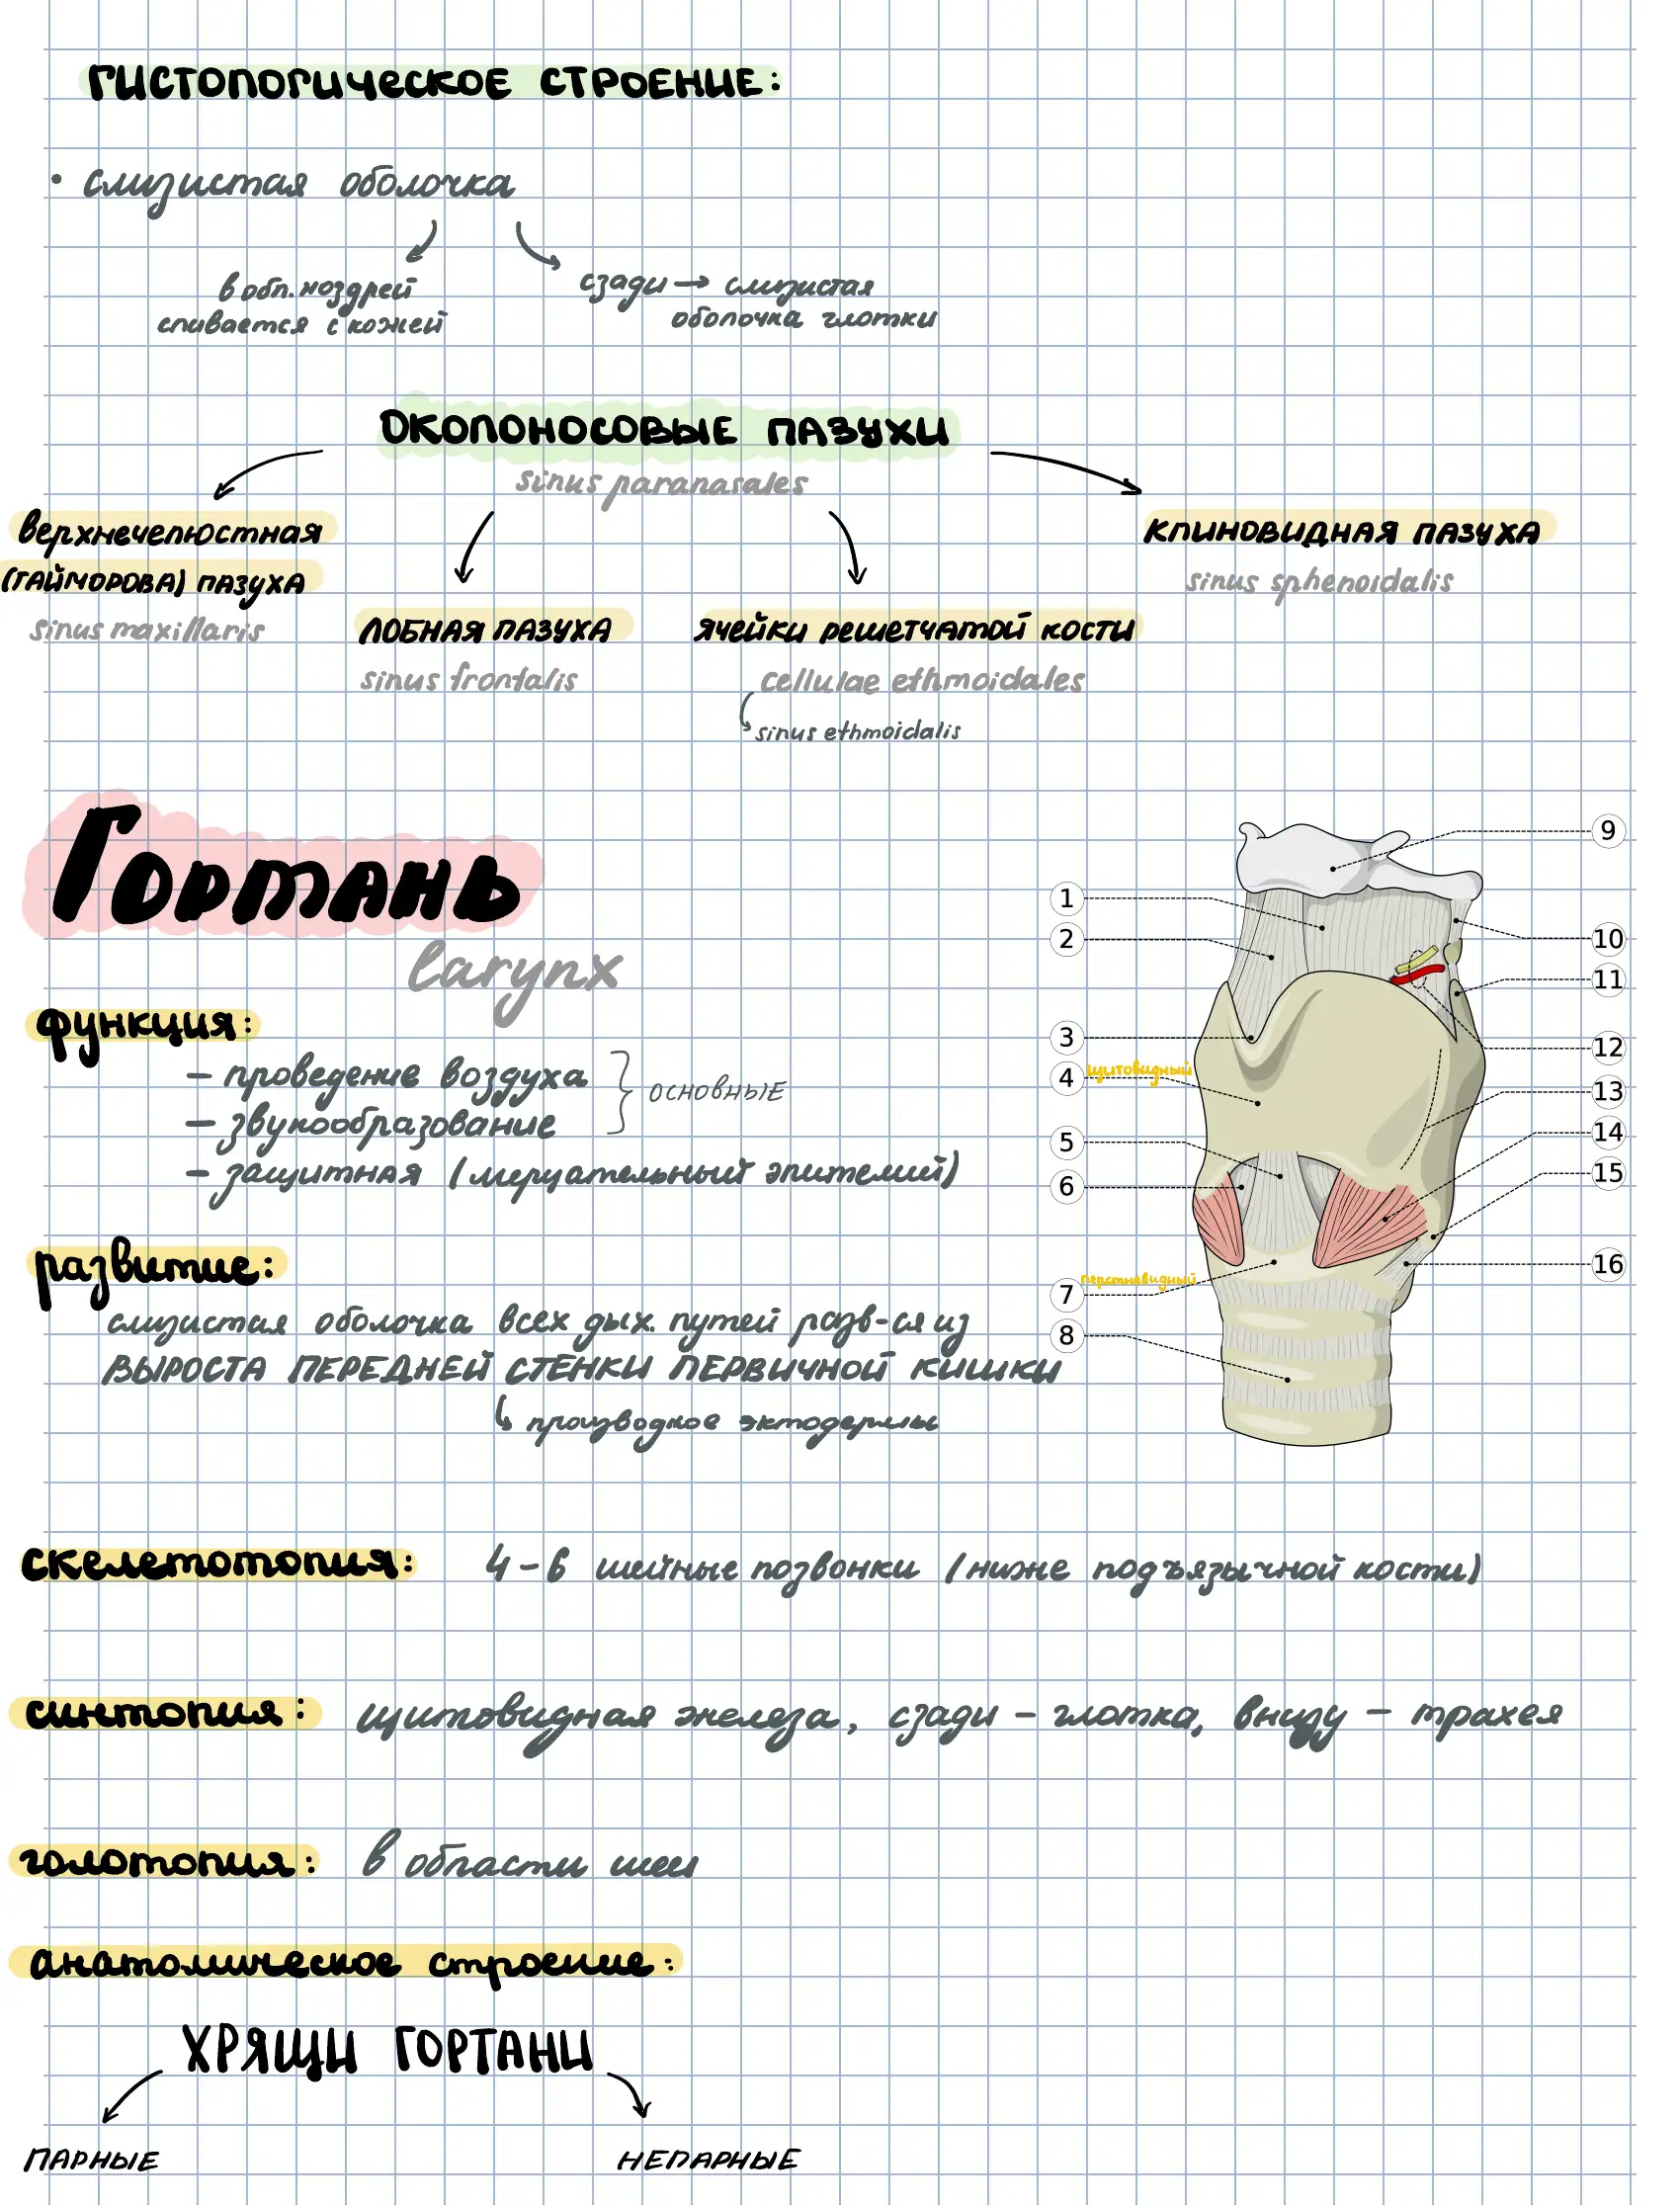 ГИСТОЛОГИЧЕСКОЕ СТРОЕНИЕ:
• слизистая оболочка
в обл. ноздрей
сливается с кожей
сзади → слизистая
оболочка глотки
ОКОЛОНОСОВЫЕ ПАЗУХИ
sinus paranasales
верхнечелюстная
(ГАЙМОРОВА) ПАЗУХА
sinus maxillaris
ЛОБНАЯ ПАЗУХА
sinus frontalis
ячейки решетчатой кости
cellulae ethmoidales
sinus ethmoidalis
КЛИНОВИДНАЯ ПАЗУХА
sinus sphenoidalis
Гортань
larynx
функция:
– проведение воздуха
– звукообразование
основные
– защитная (мерцательный эпителий)
развитие:
слизистая оболочка всех дых. путей разв-ся из
ВЫРОСТА ПЕРЕДНЕЙ СТЕНКИ ПЕРВИЧНОЙ КИШКИ
производное эктодермы
1
2
3
4
щитовидный
5
6
7
перстневидный
8
9
10
11
12
13
14
15
16
скелетотопия: 4-6 шейные позвонки (ниже подъязычной кости)
синтопия: щитовидная железа, сзади – глотка, внизу – трахея
голотопия: в области шеи
анатомическое строение:
ХРЯЩИ ГОРТАНИ
ПАРНЫЕ
НЕПАРНЫЕ